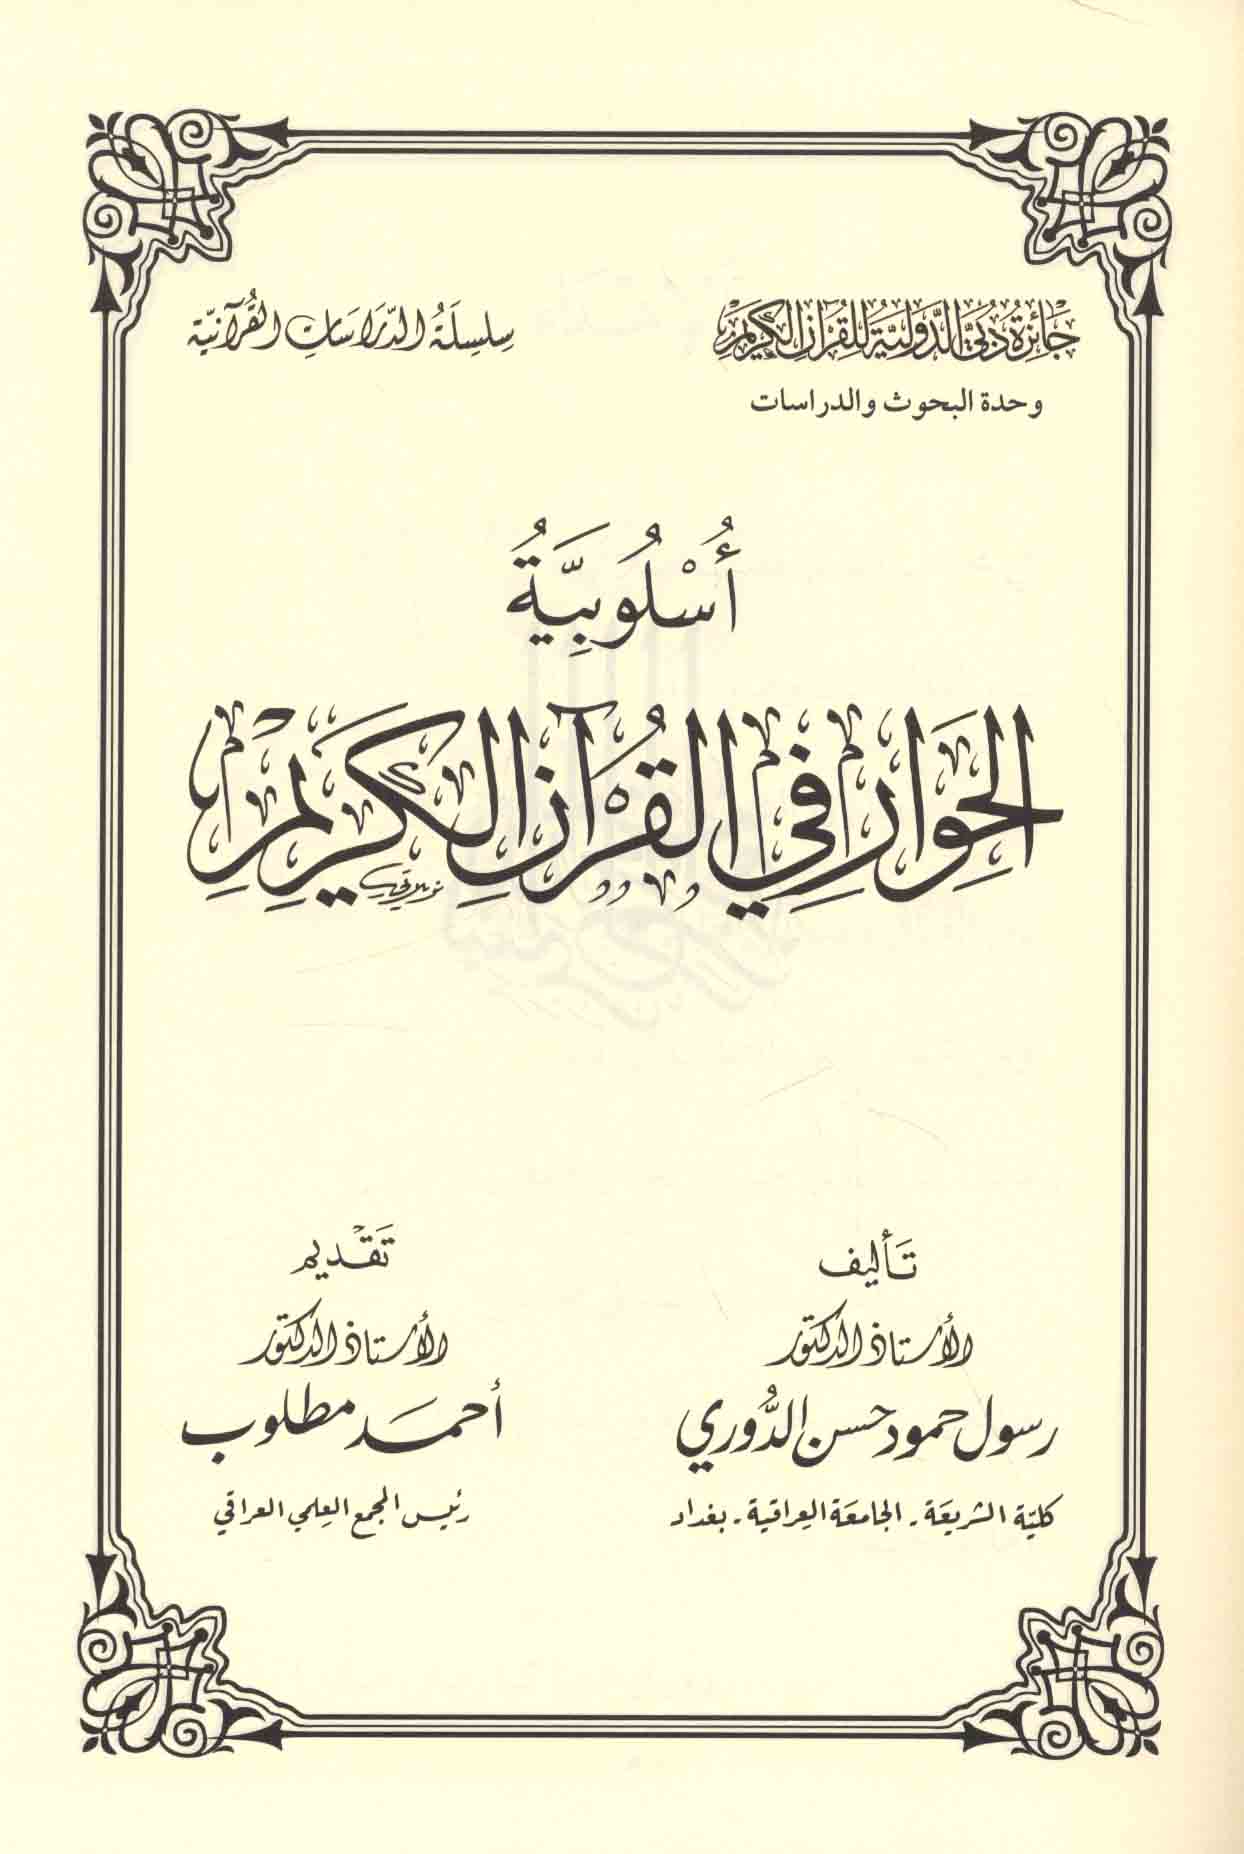 جَائِزَةُ دُبَيّ الدَّوليَّةُ لِلْقُرْآنِ الكَرِيْمِ
وحدة البحوث والدراسات
سِلْسِلَةُ الدِّرَاسَاتِ القُرْآنِيَّة
أُسْلُوبِيَّةُ
الحِوَارِ فِي القُرْآنِ الكَرِيْمِ
تَأليف
الأستاذ الدكتور
رسول حمود حسن الدُّوري
كليّة الشريعَة - الجَامعَة العِراقية - بغداد
تَقْديم
الأستاذ الدكتور
أحمد مطلوب
رئيس المجمع العِلمي العراقي